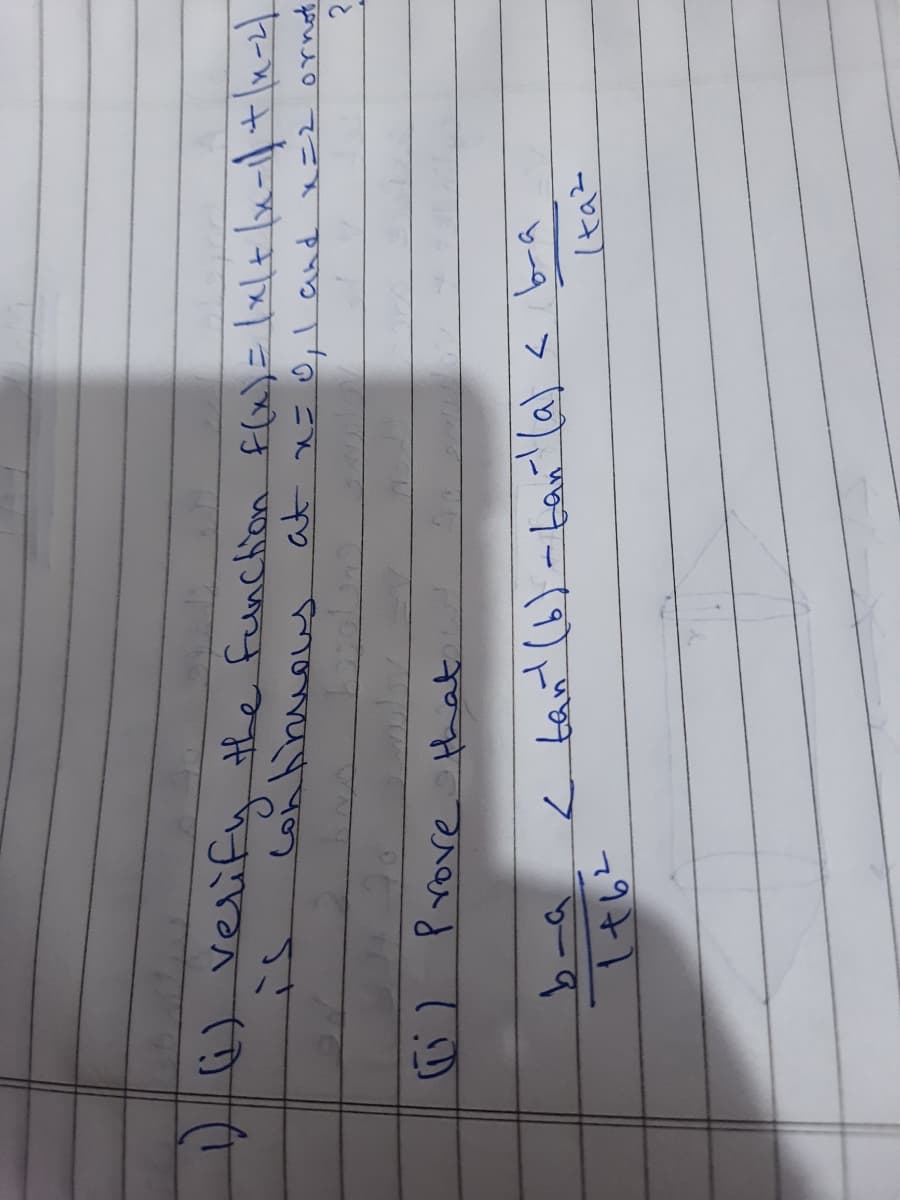 1) (i) verify the function f(x) = |x| + |x-1| + |x-2|
is continuous at x = 0, 1 and x = 2 or not
?
(ii) Prove that
b-a / 1+b² < tan⁻¹(b) - tan⁻¹(a) < b-a / 1+a²